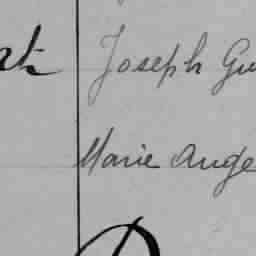 Joseph Gu
Marie Ange